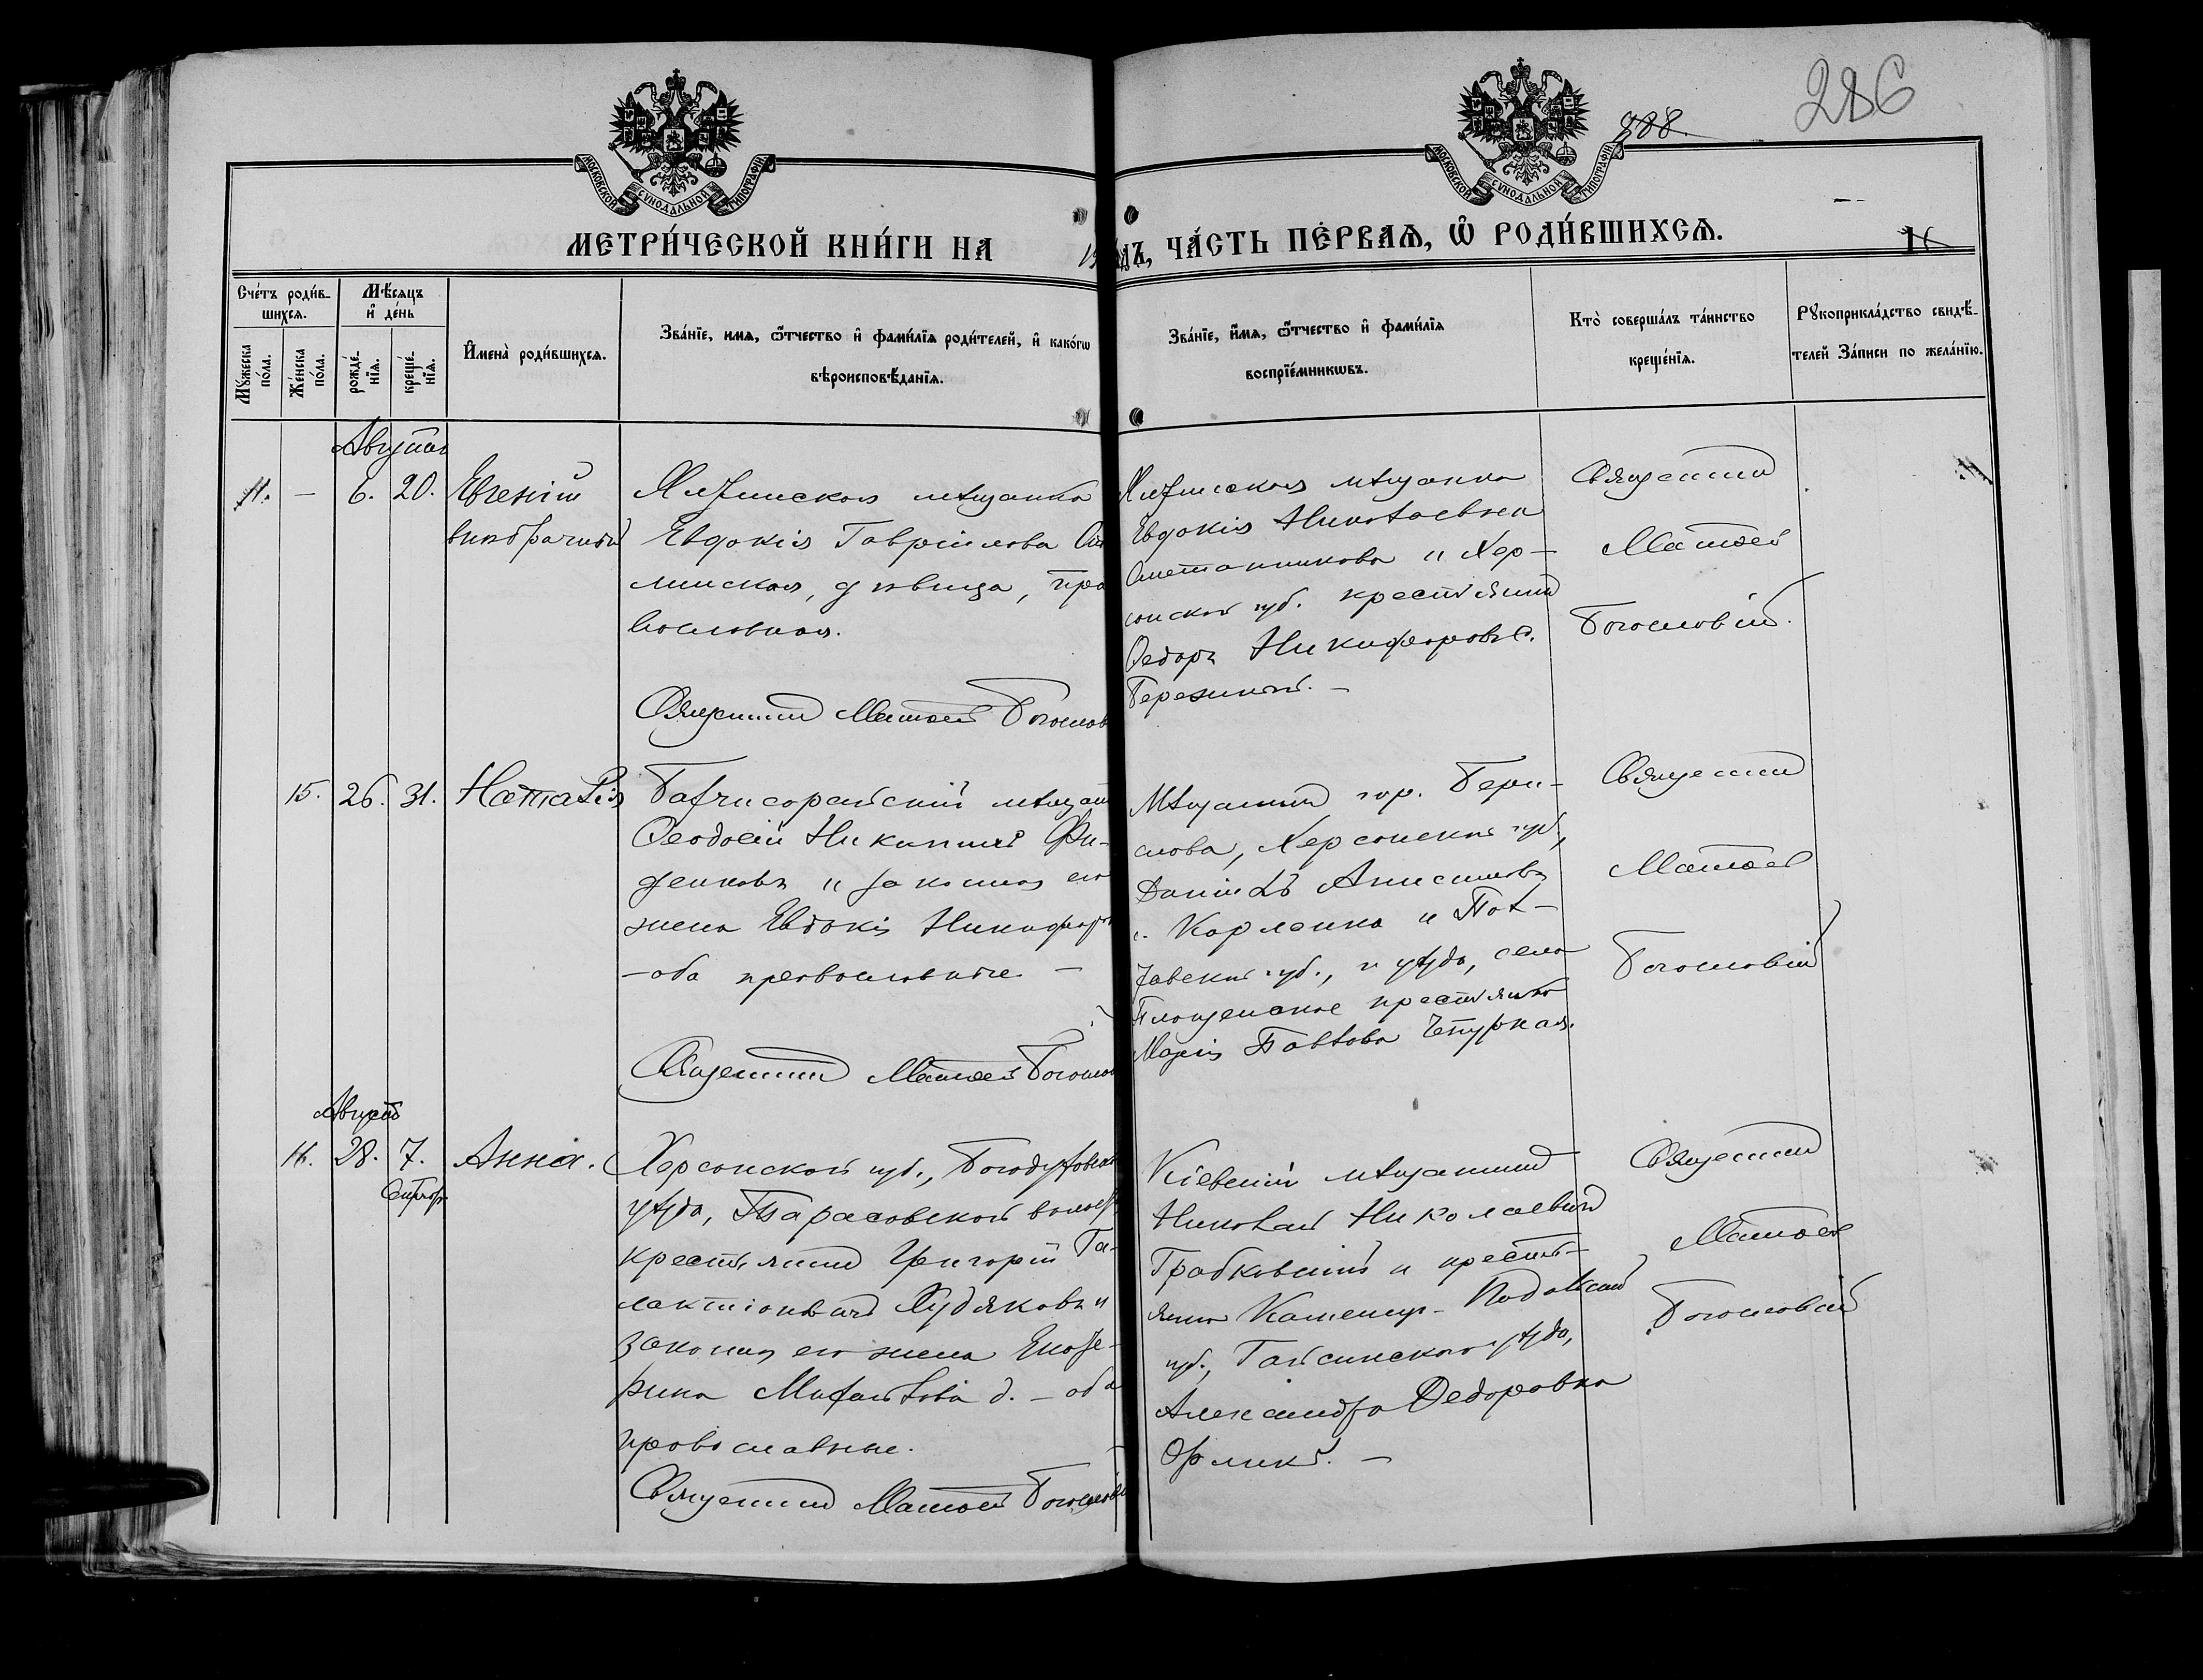 286
288.
МОСКОВСКОЙ СѴНОДАЛЬНОЙ ТИПОГРАФІИ
МОСКОВСКОЙ СѴНОДАЛЬНОЙ ТИПОГРАФІИ
МЕТРИ́ЧЕСКОЙ КНИ́ГИ НА
ЧА́СТЬ ПЕ́РВАѦ, Ѿ РОДИ́ВШИХСѦ.
Сче́тъ роди́в-
шихсѧ.
Мꙋ́жеска по́ла.
Же́нска по́ла.
Мѣ́сѧцъ
и҆ де́нь
рожде́-
нїѧ.
креще́-
нїѧ.
И҆мена̀ роди́вшихсѧ.
Зва́нїе, имѧ, ѻ҆́тчество и҆ фами́лїѧ роди́телей, и҆ како́гѡ
вѣроисповѣ́данїѧ.
Зва́нїе, и҆́мѧ, ѻ҆́тчество и҆ фами́лїѧ
воспрїе́мникѡвъ.
Кто̀ соверша́лъ та́инство
креще́нїѧ.
Рꙋкоприкла́дство свидѣ́-
телей За́писи по жела́нїю.
Августа
11. – 6. 20. Евгеній
внѣбрачный
мѣщанка
Евдокія Гавріилова
дѣвица, пра
вославная.
Священникъ Матѳей Богослов
мѣщанка
Евдокія Николаевна
Сметанникова и Хер-
сонской губ. крестьянинъ
Ѳедоръ Никифоровъ
Священникъ
Матѳей
Богословій.
15. 26. 31. Наталія
Бахчисарайскій мѣщан
Ѳеодосій Никитичъ
и законная его
жена Евдокія Никифор
– оба православные –
Священникъ Матѳей Богослов
Мѣщанинъ гор. Бери-
слава, Херсонской губ.,
Даніилъ Анисимовъ
Карленко и Пол-
тавской губ., и уѣзда, села
крестьянка
Марія Павлова Чепурная.
Священникъ
Матѳей
Богословій
Августъ
16. 28. 7. Анна.
Сентябр.
Херсонской губ.,
уѣзда, Тарасовской волости
крестьянинъ Григорій Га-
лактіоновичъ Худяковъ и
законная его жена Екате-
рина Михайлова д. – оба
православные.
Священникъ Матѳей Богословій
Кіевскій мѣщанинъ
Николай Николаевичъ
Грабковскій и кресть-
янка Каменец-Подольской
губ., Гайсинскаго уѣзда,
Александра Ѳедоровна
Орликъ. –
Священникъ
Матѳей
Богословій